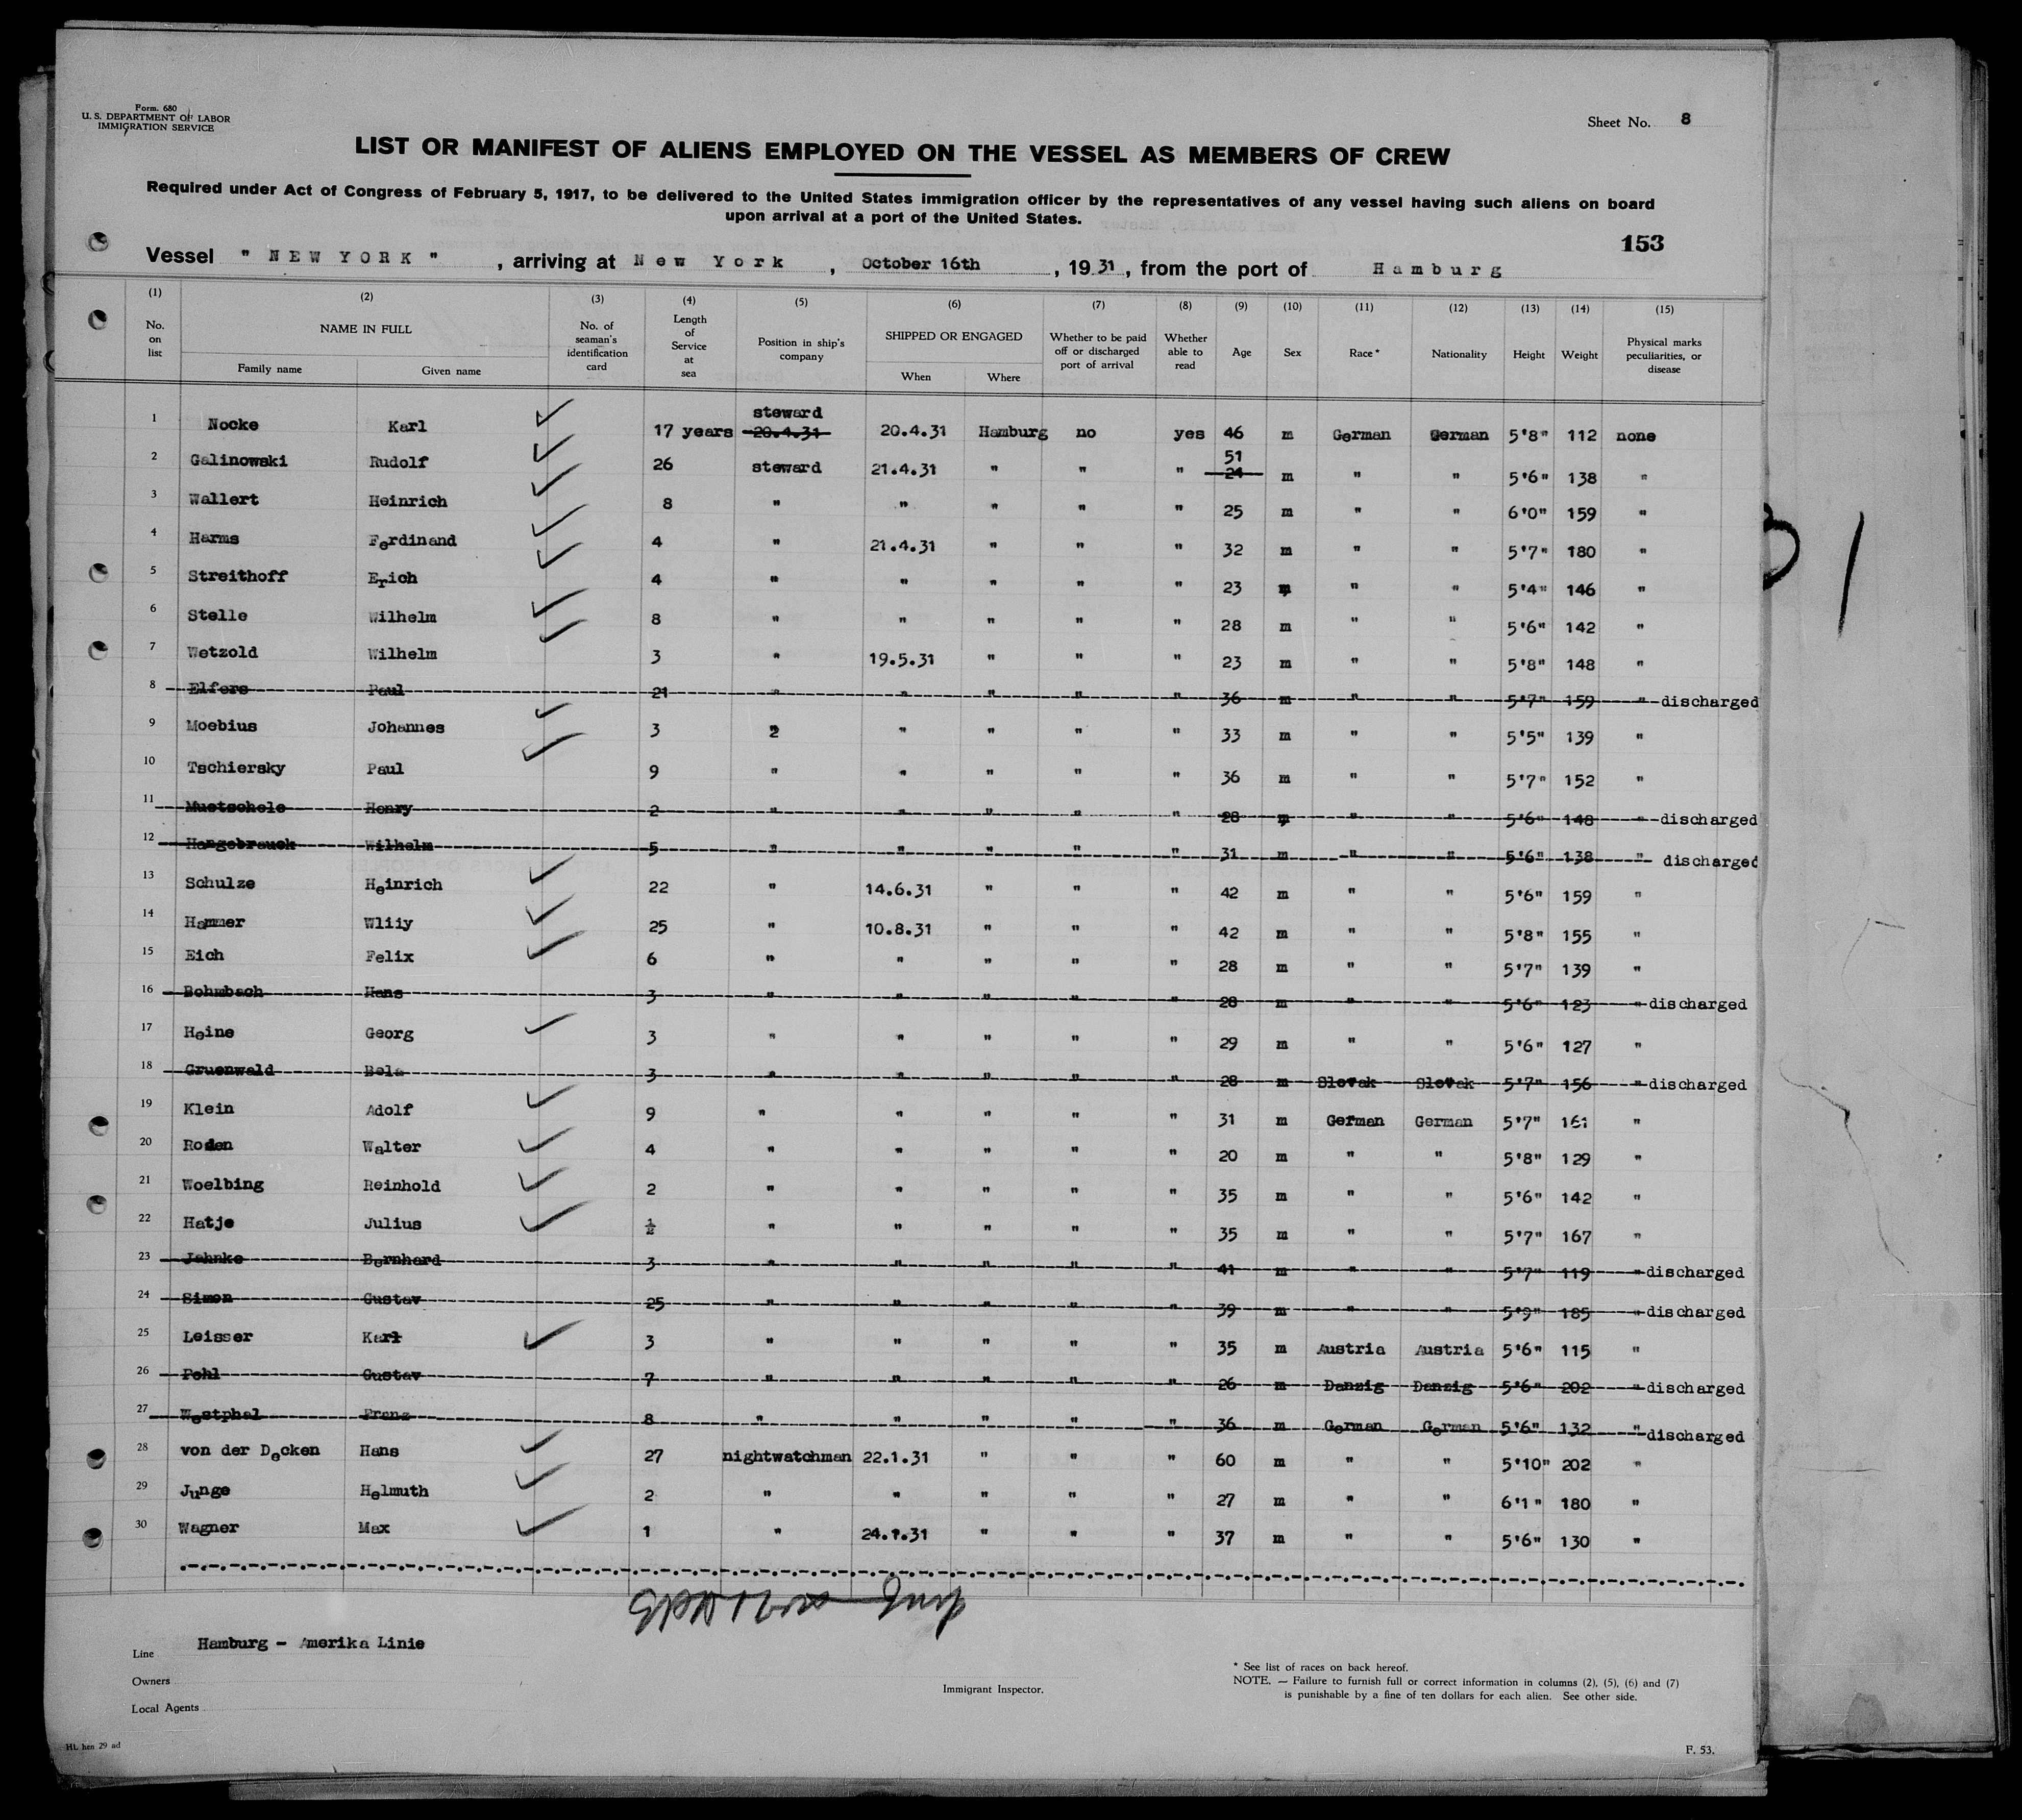 Form. 680
U. S. DEPARTMENT OF LABOR
IMMIGRATION SERVICE
Sheet No. 8
LIST OR MANIFEST OF ALIENS EMPLOYED ON THE VESSEL AS MEMBERS OF CREW
Required under Act of Congress of February 5, 1917, to be delivered to the United States immigration officer by the representatives of any vessel having such aliens on board
upon arrival at a port of the United States.
153
Vessel " NEW YORK " , arriving at New York , October 16th , 1931, from the port of Hamburg
(1) (2) (3) (4) (5) (6) (7) (8) (9) (10) (11) (12) (13) (14) (15)
No. on list NAME IN FULL Family name Given name No. of seaman's identification card Length of Service at sea Position in ship's company SHIPPED OR ENGAGED When Where Whether to be paid off or discharged port of arrival Whether able to read Age Sex Race* Nationality Height Weight Physical marks peculiarities, or disease
steward
1 Nocke Karl 17 years 20.4.31 20.4.31 Hamburg no yes 46 m German German 5'8" 112 none
51
2 Galinowski Rudolf 26 steward 21.4.31 " " " 24 m " " 5'6" 138 "
3 Wallert Heinrich 8 " " " " " 25 m " " 6'0" 159 "
4 Harms Ferdinand 4 " 21.4.31 " " " 32 m " " 5'7" 180 "
5 Streithoff Erich 4 " " " " " 23 m " " 5'4" 146 "
6 Stelle Wilhelm 8 " " " " " 28 m " " 5'6" 142 "
7 Wetzold Wilhelm 3 " 19.5.31 " " " 23 m " " 5'8" 148 "
8 Elfers Paul 21 " " " " " 36 m " " 5'7" 159 " discharged
9 Moebius Johannes 3 " " " " " 33 m " " 5'5" 139 "
10 Tschiersky Paul 9 " " " " " 36 m " " 5'7" 152 "
11 Muetschele Henry 2 " " " " " 28 m " " 5'6" 148 " discharged
12 Hangebrauck Wilhelm 5 " " " " " 31 m " " 5'6" 138 " discharged
13 Schulze Heinrich 22 " 14.6.31 " " " 42 m " " 5'6" 159 "
14 Hammer Wliiy 25 " 10.8.31 " " " 42 m " " 5'8" 155 "
15 Eich Felix 6 " " " " " 28 m " " 5'7" 139 "
16 Bohmbach Hans 3 " " " " " 28 m " " 5'6" 123 " discharged
17 Heine Georg 3 " " " " " 29 m " " 5'6" 127 "
18 Gruenwald Bela 3 " " " " " 28 m Slovak Slovak 5'7" 156 " discharged
19 Klein Adolf 9 " " " " " 31 m German German 5'7" 161 "
20 Roden Walter 4 " " " " " 20 m " " 5'8" 129 "
21 Woelbing Reinhold 2 " " " " " 35 m " " 5'6" 142 "
22 Hatje Julius ½ " " " " " 35 m " " 5'7" 167 "
23 Jahnke Bernhard 3 " " " " " 41 m " " 5'7" 119 " discharged
24 Simon Gustav 25 " " " " " 39 m " " 5'9" 185 " discharged
25 Leisser Karl 3 " " " " " 35 m Austria Austria 5'6" 115 "
26 Pohl Gustav 7 " " " " " 26 m Danzig Danzig 5'6" 202 " discharged
27 Westphal Franz 8 " " " " " 36 m German German 5'6" 132 " discharged
28 von der Decken Hans 27 nightwatchman 22.1.31 " " " 60 m " " 5'10" 202 "
29 Junge Helmuth 2 " " " " " 27 m " " 6'1" 180 "
30 Wagner Max 1 " " " " 37 m " " 5'6" 130 "
Line Hamburg - Amerika Linie
Owners
Local Agents
Immigrant Inspector.
* See list of races on back hereof.
NOTE. — Failure to furnish full or correct information in columns (2), (5), (6) and (7)
is punishable by a fine of ten dollars for each alien. See other side.
Ht. hen 29 ad
F. 53.